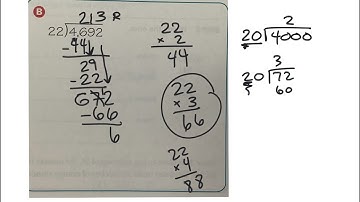 B
213 R
22)4,692
-44
29
-22
672
-66
6
22
× 2
44
22
× 3
66
22
×4
88
2
20)4000
3
20)72
60